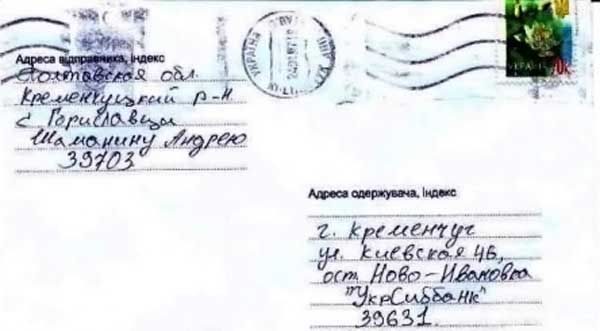 УКРАЇНА
УКРАЇНА
Адреса відправника, індекс
Полтавская обл.
Кременчуцкий р-н
с Гориславцы
Шаманину Андрею
39703
Адреса одержувача, індекс
г. Кременчуг
ул. Киевская 4Б,
ост. Ново-Ивановка
"УкрСиббанк"
39631.